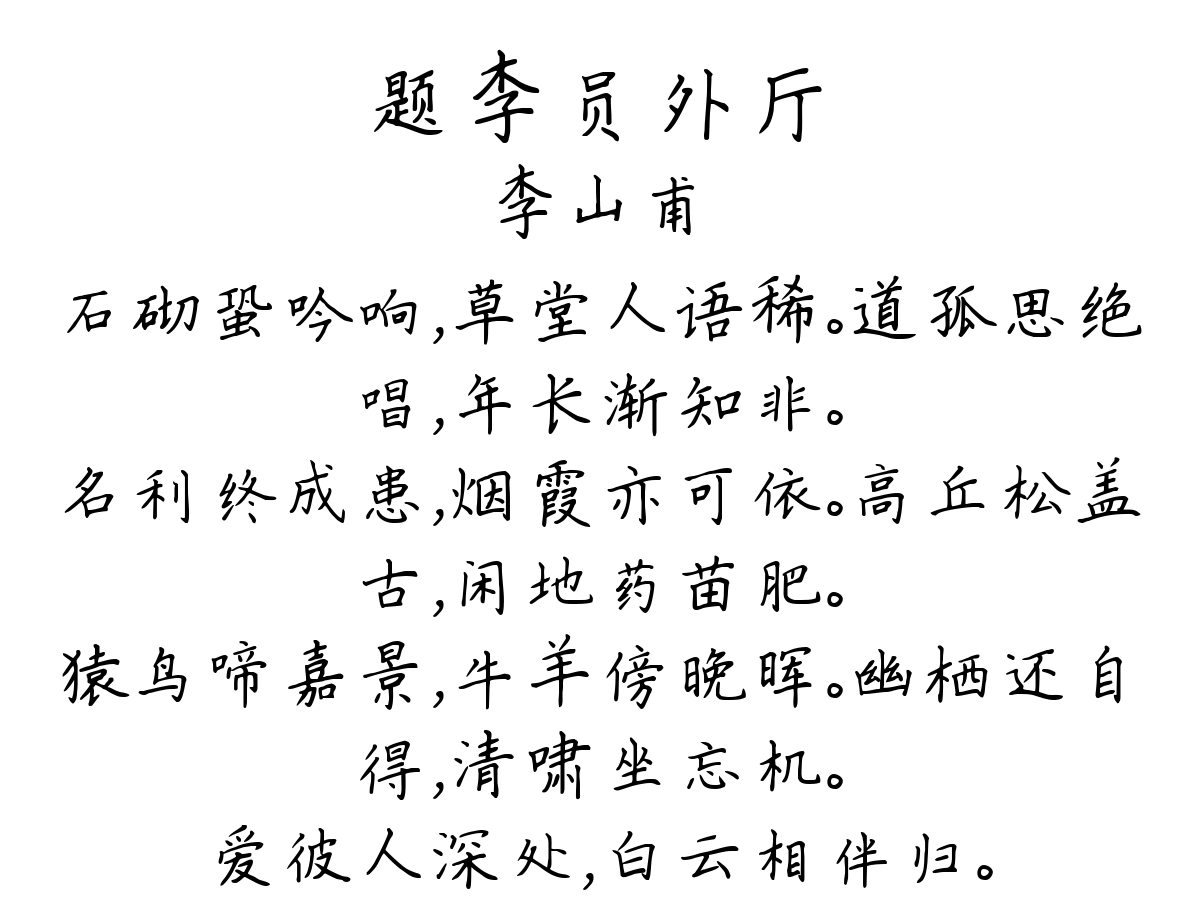 题李员外厅
李山甫
石砌蛩吟响,草堂人语稀。道孤思绝
唱,年长渐知非。
名利终成患,烟霞亦可依。高丘松盖
古,闲地药苗肥。
猿鸟啼嘉景,牛羊傍晚晖。幽栖还自
得,清啸坐忘机。
爱彼人深处,白云相伴归。